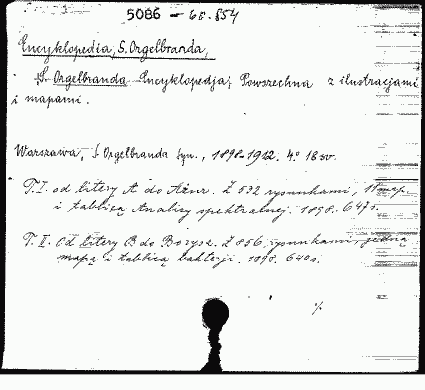 5086 – 68.854
Encyklopedia, S. Orgelbranda,
S. Orgelbranda Encyklopedja Powszechna z ilustracjami
i mapami.
Warszawa, S. Orgelbranda Syn., 1898-1912. 4° 18 sv.
T. I. od litery A do Ažur. Z 532 rysunkami, 11 map.
i tablicą Analizy spektralnej. 1898. 647 s.
T. II. Od litery B do Bozysz. Z 856 rysunkami, jedną
mapą i tablicą bakterji. 1898. 640 s.
%